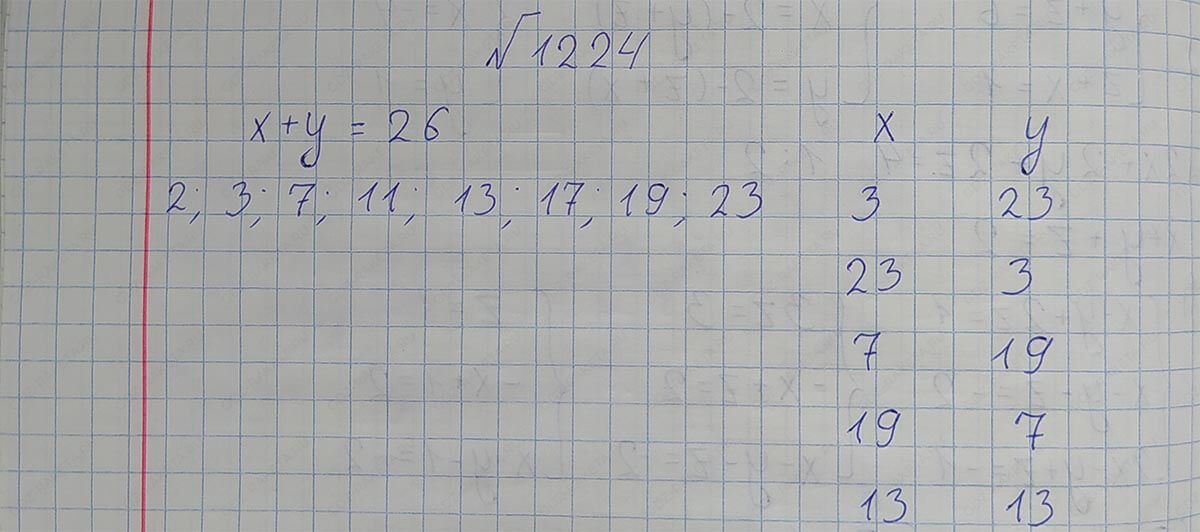 √1224
x+y = 26 x y
2; 3; 7; 11; 13; 17; 19; 23 3 23
23 3
7 19
19 7
13 13